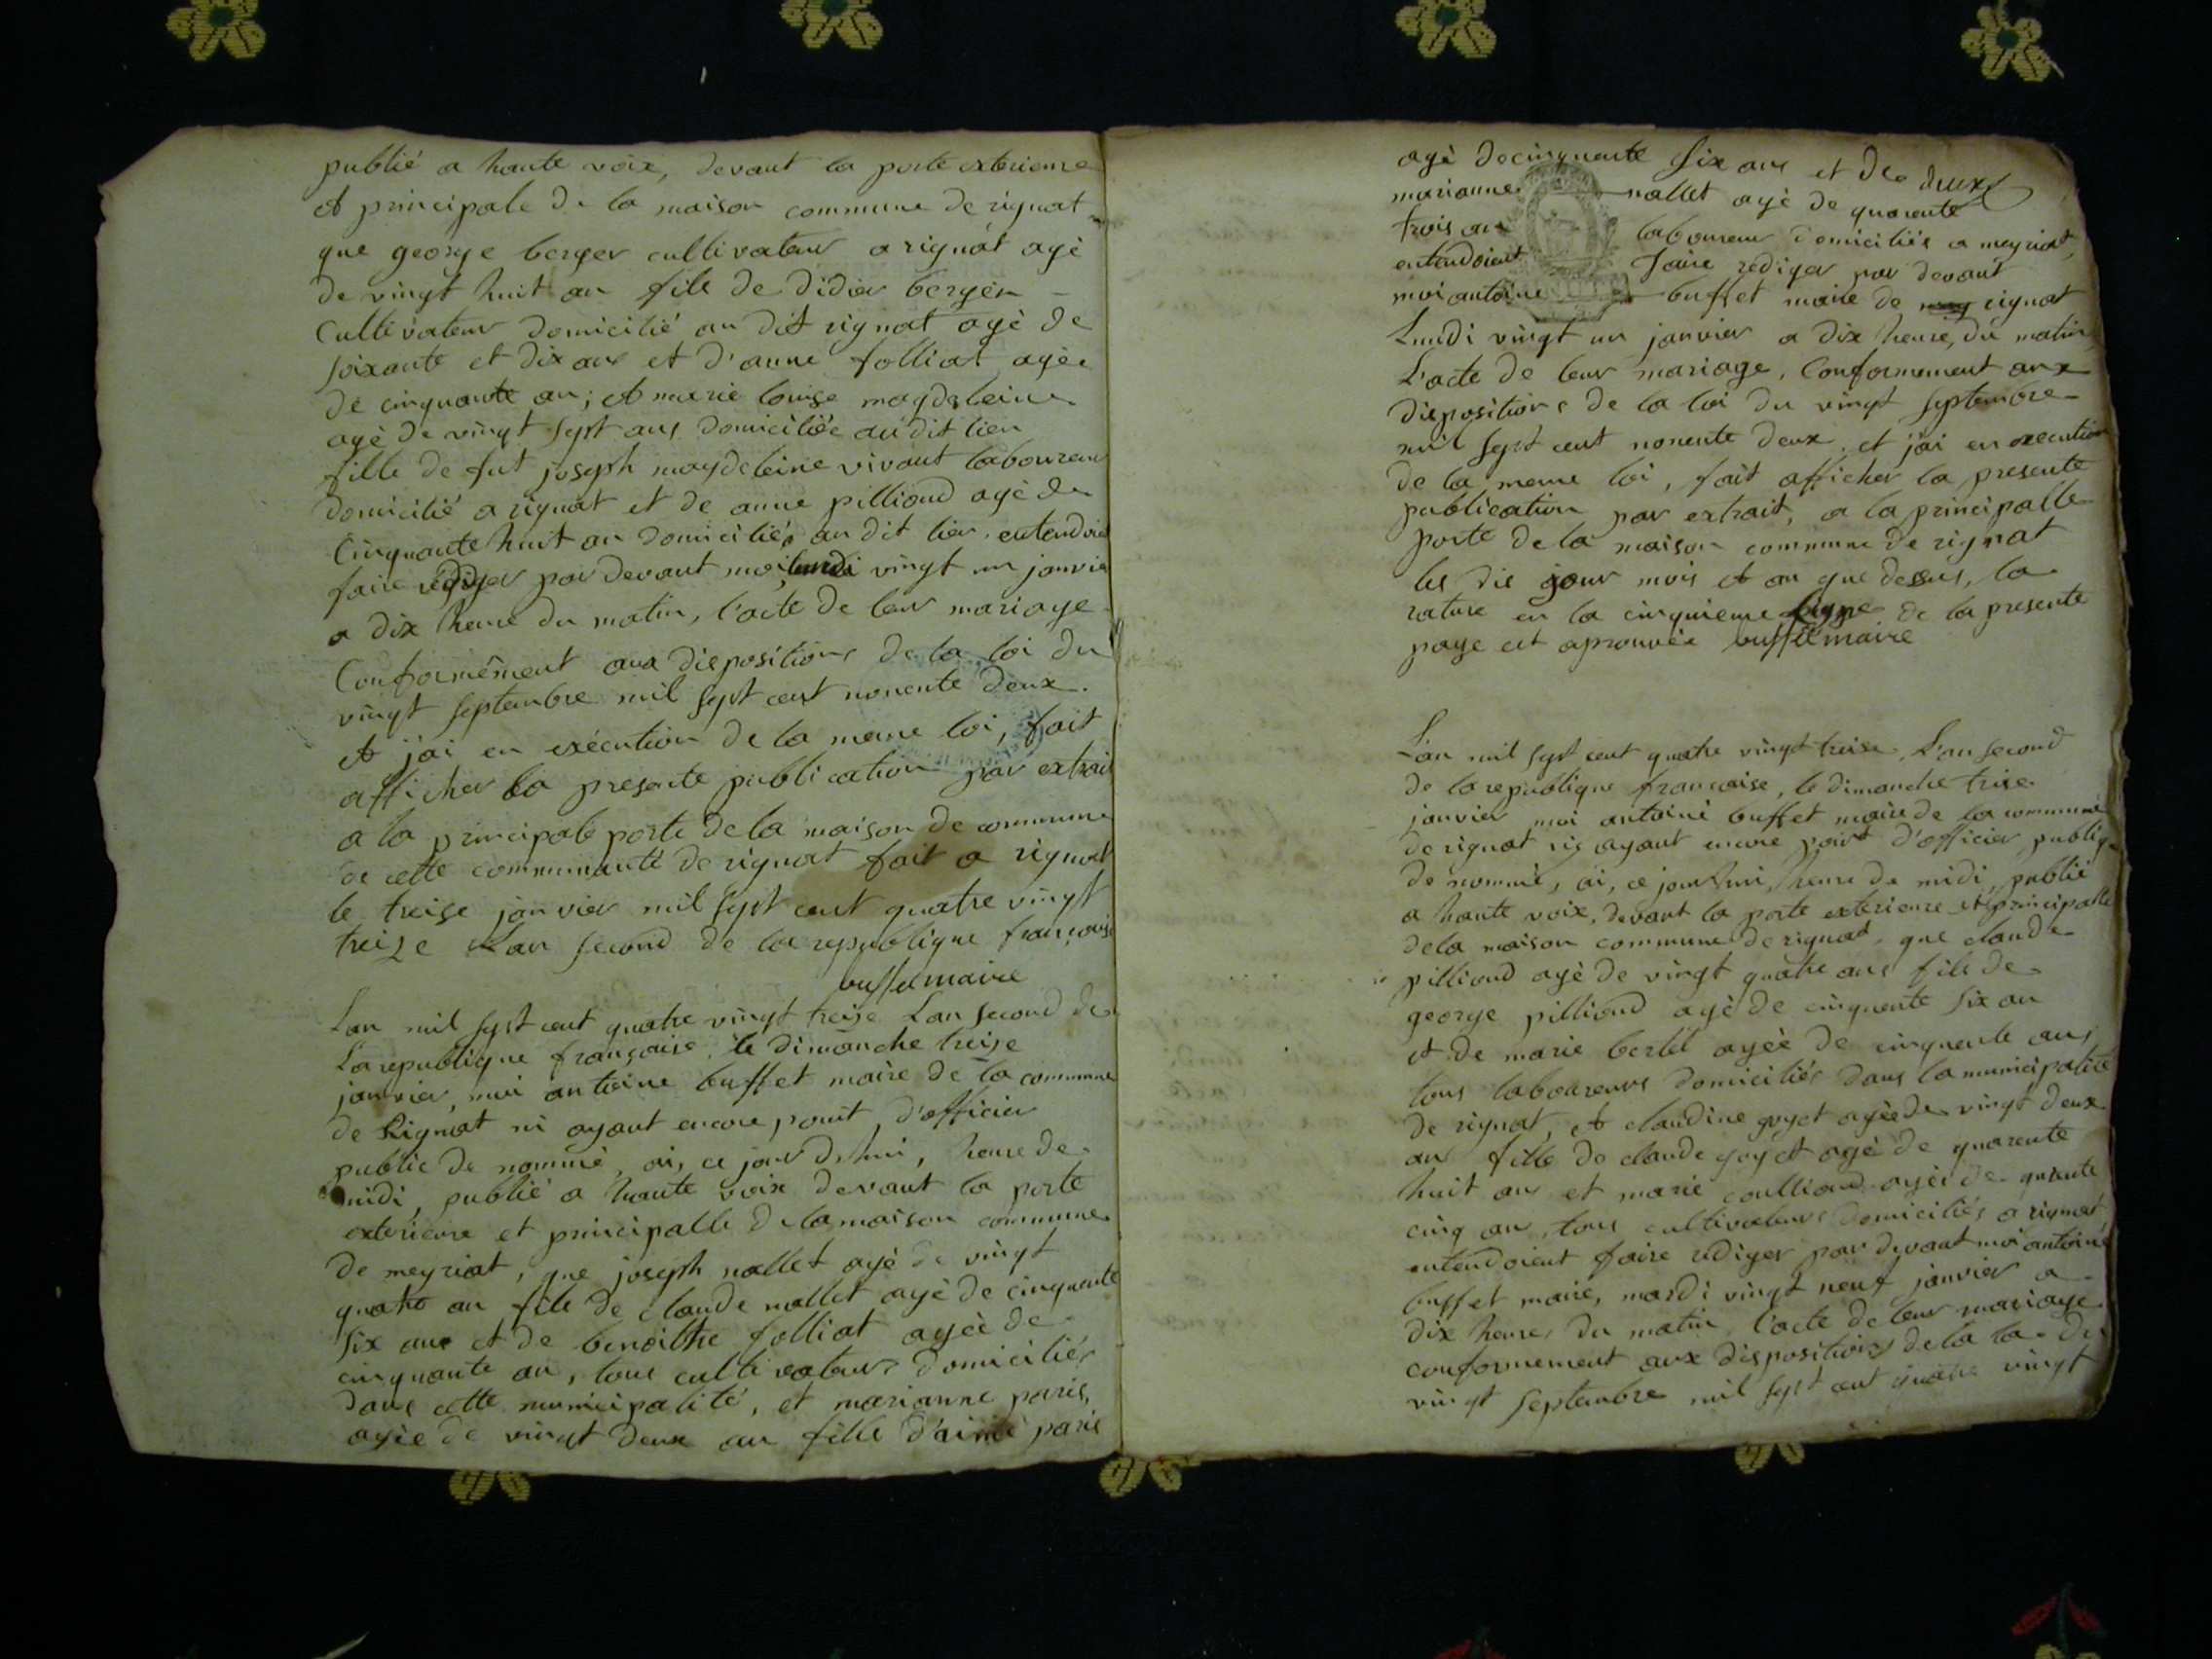 publié a haute voix, devant la porte exterieure
et principale de la maison commune de rignat
que george berger cultivateur a rignat agé
de vingt huit an fils de didier berger
Cultivateur domicilié au dit rignat agé de
soixante et dix ans et d'anne folliat agée
de cinquante an; et marie louise magdeleine
agé de vingt sept ans domiciliée au dit lieu
fille de fut joseph magdeleine vivant laboureur
domicilié a rignat et de anne pilliond agé de
Cinquante huit an domiciliés au dit lieu entendoient
faire rédiger par devant moi lundi vingt un janvier
a dix heure du matin, l'acte de leur mariage
Conformément aux dispositions de la loi du
vingt septembre mil sept cent nonente deux.
et j'ai en exécution de la meme loi, fait
afficher la presente publication par extrait
a la principale porte de la maison de commune
de cette communauté de rignat fait a rignat
le treise janvier mil sept cent quatre vingt
treize Lan second de la republique françoise
buffet maire
Lan mil sept cent quatre vingt treise Lan second de
La republique françoise, le dimanche treise
janvier, moi antoine buffet maire de la commune
de Rignat ni ayant encore point d'officier
public de nommé, ai, ce jour d'hui, heure de
midi, publié a haute voix devant la porte
exterieure et principalle de la maison commune
de meyriat, que joseph nallet agé de vingt
quatre an fils de claude nallet agé de cinquante
six ans et de benoithe folliat agée de
cinquante an, tous cultivateurs domiciliés
dans cette municipalité, et marianne paris,
agée de vingt deux an fille d'aimé paris
agé de cinquante six ans et de deux
marianne nallet agé de quarente
trois an laboureur domiciliés a meyriat,
entendoient faire rediger par devant
moi antoine buffet maire de rignat
Lundi vingt un janvier a dix heure, du matin,
L'acte de leur mariage, Conformement aux
dispositions de la loi du vingt septembre
mil sept cent nonente deux, et j'ai en execution
de la meme loi, fait afficher la presente
publication par extrait, a la principalle
porte de la maison commune de rignat
les dis jour mois et an que dessus, la
rature en la cinquieme ligne de la presente
page est aprouvée buffet maire
L'an mil sept cent quatre vingt treise, L'an second
de la republique françoise, le dimanche treise
janvier moi antoine buffet maire de la commune
de rignat ni ayant encore point d'officier public
de nommé, ai, ce jourd'hui, heure de midi, publié
a haute voix, devant la porte exterieure et principalle
de la maison commune de rignat, que claude
pilliond agé de vingt quatre ans fils de
george pilliond agé de cinquente six an
et de marie bertet agée de cinquente ans
tous laboureurs domiciliés dans la municipalité
de rignat, et claudine guyot agée de vingt deux
an fille de claude guyot agé de quarente
huit ans et marie coulliond agée de quarente
cinq an, tous cultivateurs domiciliés a rignat
entendoient faire rediger par devant moi antoine
buffet maire, mardi vingt neuf janvier a
dix heure, du matin l'acte de leur mariage
conformement aux dispositions de la loi du
vingt septembre mil sept cent quatre vingt